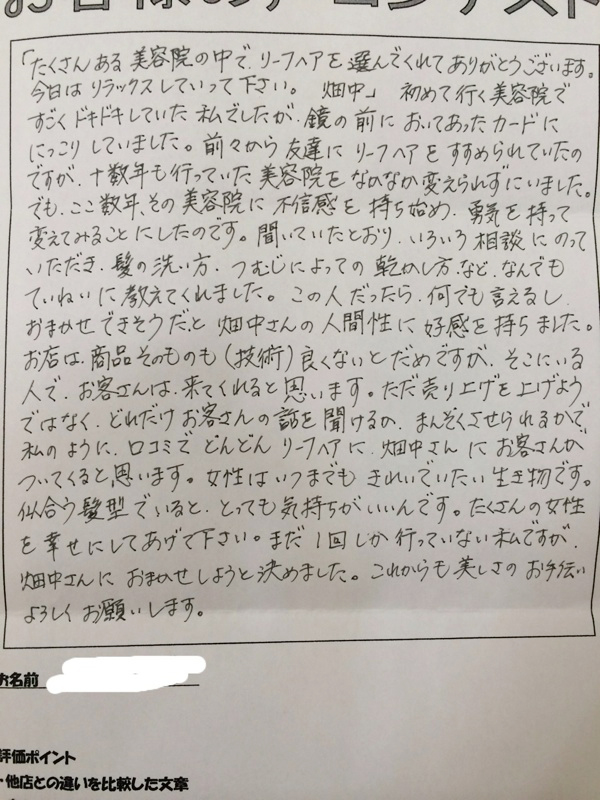 「たくさんある美容院の中で、リーフヘアを選んでくれてありがとうございます。
今日はリラックスしていって下さい。 畑中」 初めて行く美容院で
すごくドキドキしていた私でしたが、鏡の前においてあったカードに
にっこりしていました。前々から友達にリーフヘアをすすめられていたの
ですが、十数年も行っていた美容院をなかなか変えられずにいました。
でも、ここ数年、その美容院に不信感を持ち始め、勇気を持って
変えてみることにしたのです。聞いていたとおり、いろいろ相談にのって
いただき、髪の洗い方、つむじによっての乾かし方、など、なんでも
ていねいに教えてくれました。この人だったら、何でも言えるし、
おまかせできそうだ、と畑中さんの人間性に好感を持ちました。
お店は、商品そのものも(技術)良くないとだめですが、そこにいる
人で、お客さんは、来てくれると思います。ただ売り上げを上げよう
ではなく、どれだけお客さんの話を聞けるか、まんぞくさせられるかで
私のように、口コミでどんどんリーフヘアに、畑中さんにお客さんが
ついてくると思います。女性はいつまでもきれいでいたい生き物です。
似合う髪型でいると、とっても気持ちがいいんです。たくさんの女性
を幸せにしてあげて下さい。まだ1回しか行っていない私ですが、
畑中さんにおまかせしようと決めました。これからも美しさのお手伝い
よろしくお願いします。
お名前
評価ポイント
・他店との違いを比較した文章